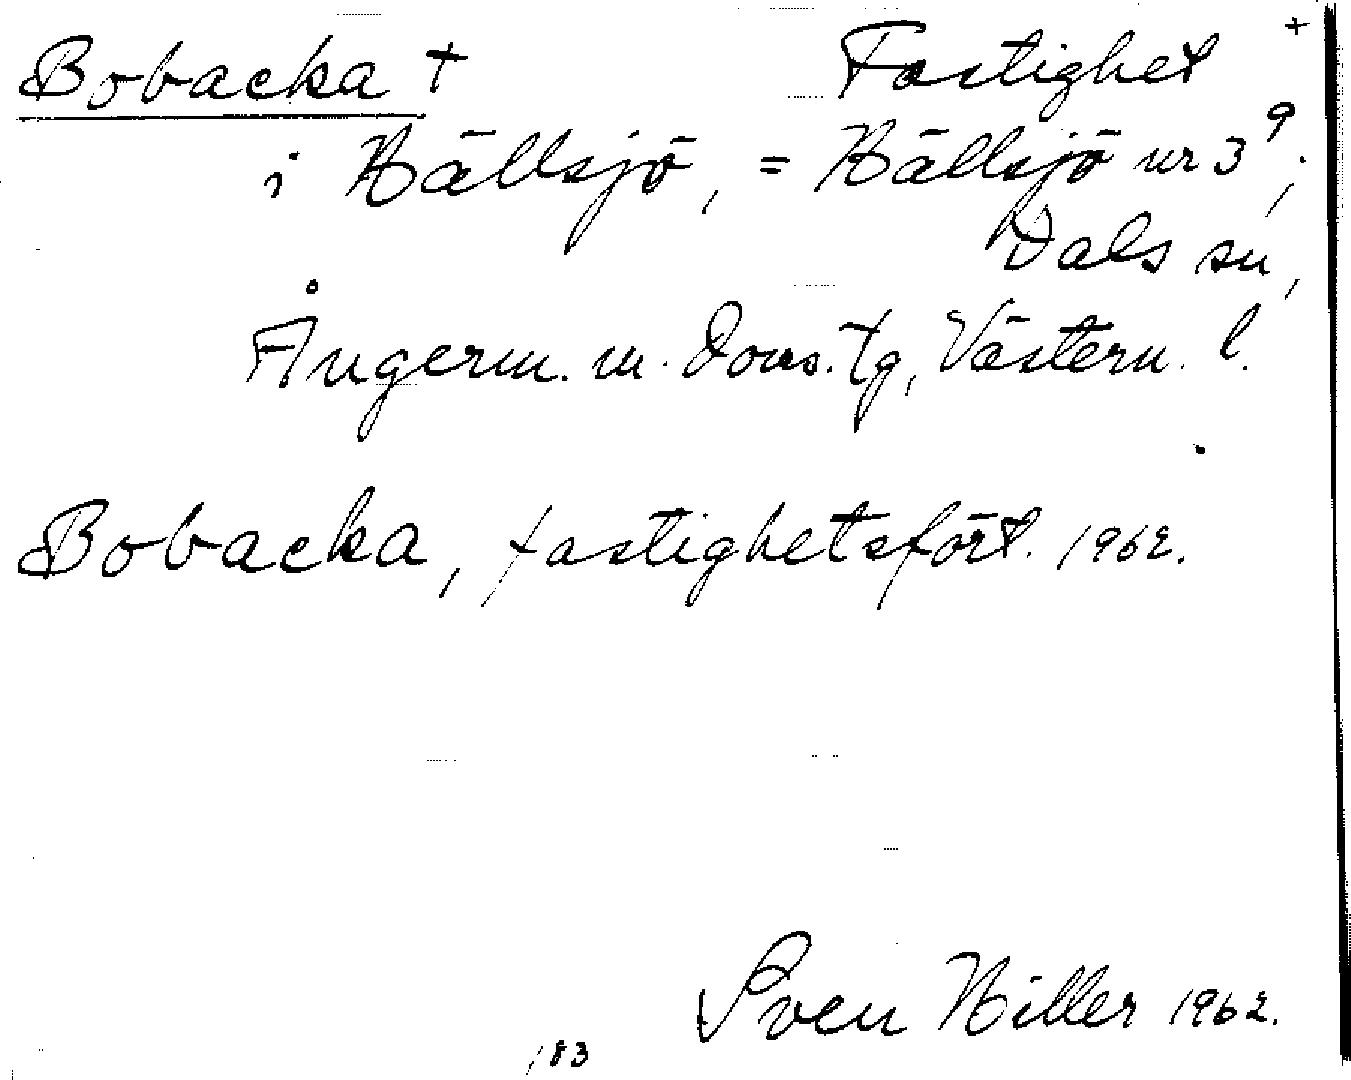 Bobacka + Fastighet +
i Hällsjö, = Hällsjö nr 3⁹;
Dals sn,
Ångerm. m. doms. tg, Västern. l.
Bobacka, fastighetsfört. 1962.
Sven Hiller 1962.
183